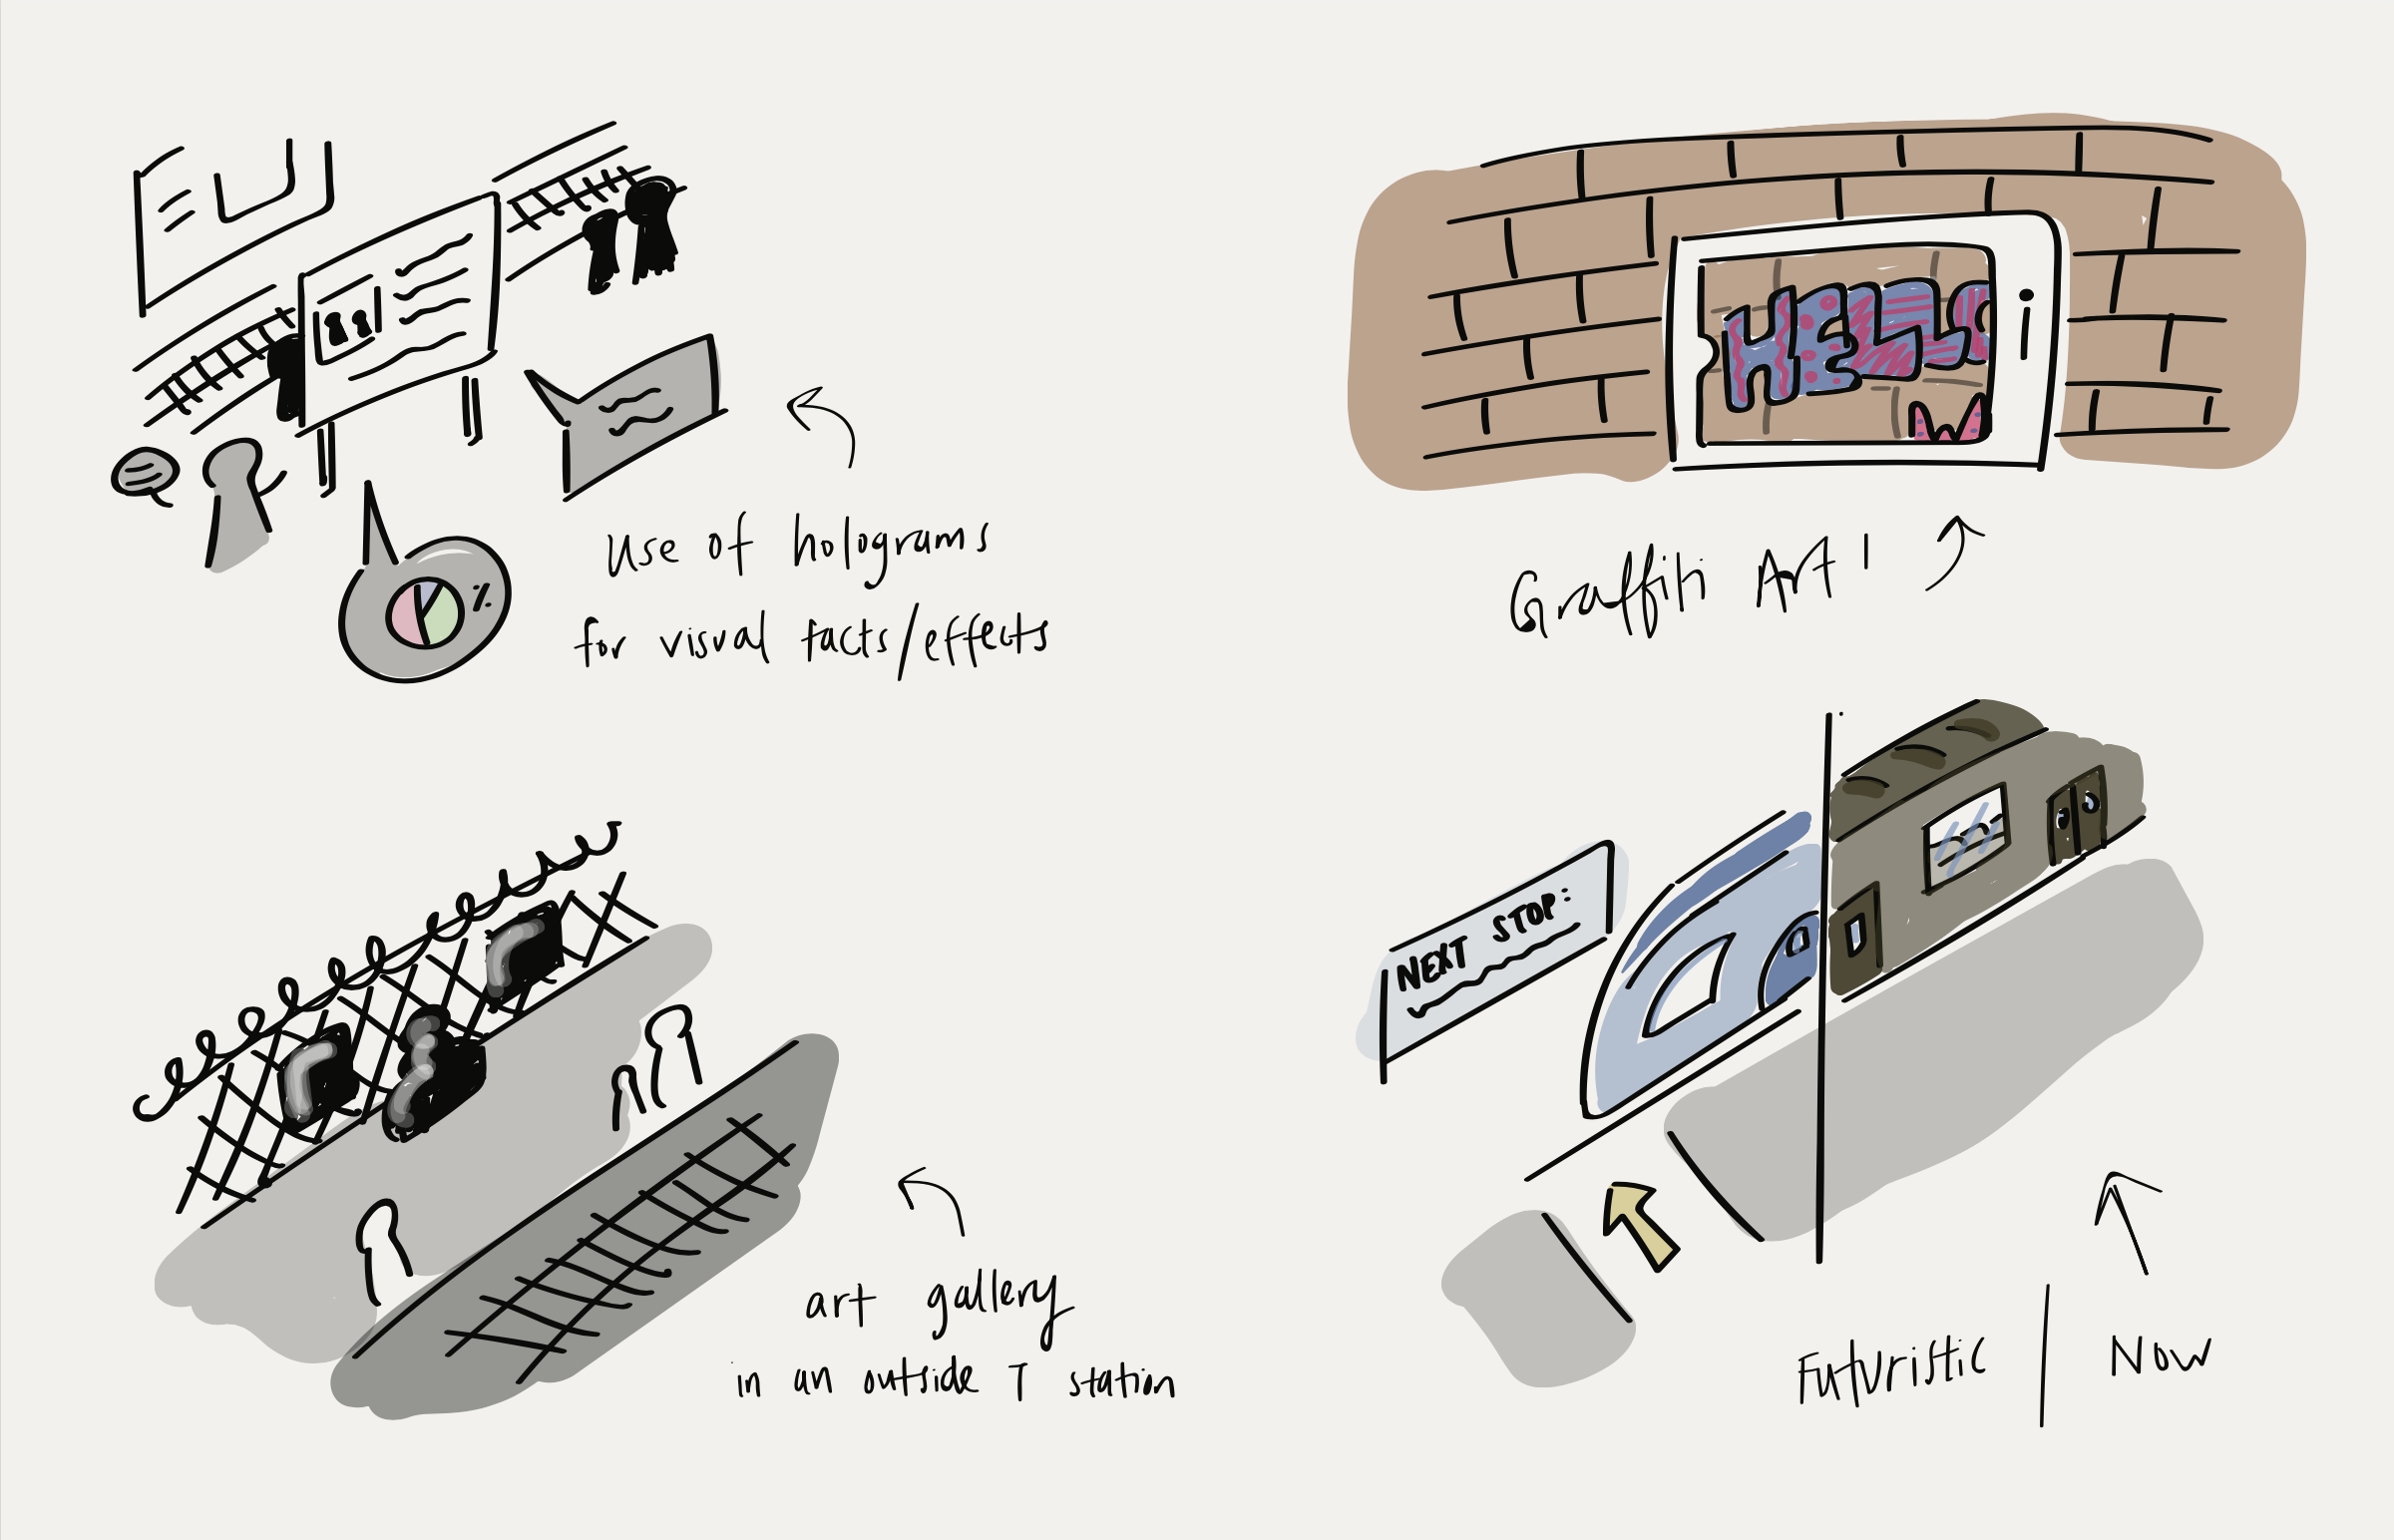 Use of holograms
for visual facts/effects
HELLO
W
Graffiti Art
art gallery
in an outside T station
NEXT STOP:
Futuristic / Now